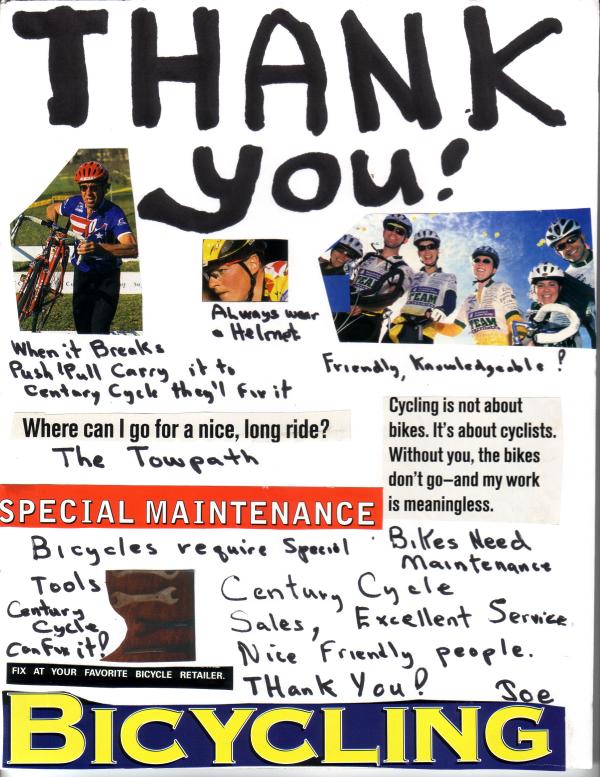 THANK
you!
Always wear
a Helmet
When it Breaks
Push/Pull Carry it to
Century Cycle they'll Fix it
Friendly, Knowledgeable!
Where can I go for a nice, long ride?
The Towpath
Cycling is not about
bikes. It's about cyclists.
Without you, the bikes
don't go–and my work
is meaningless.
SPECIAL MAINTENANCE
Bicycles require Special
Tools
Century
Cycle
Can Fix it!
Bikes Need
Maintenance
Century Cycle
Sales, Excellent Service.
Nice Friendly people.
THank You!
Joe
FIX AT YOUR FAVORITE BICYCLE RETAILER.
BICYCLING
TEAM
TEAM